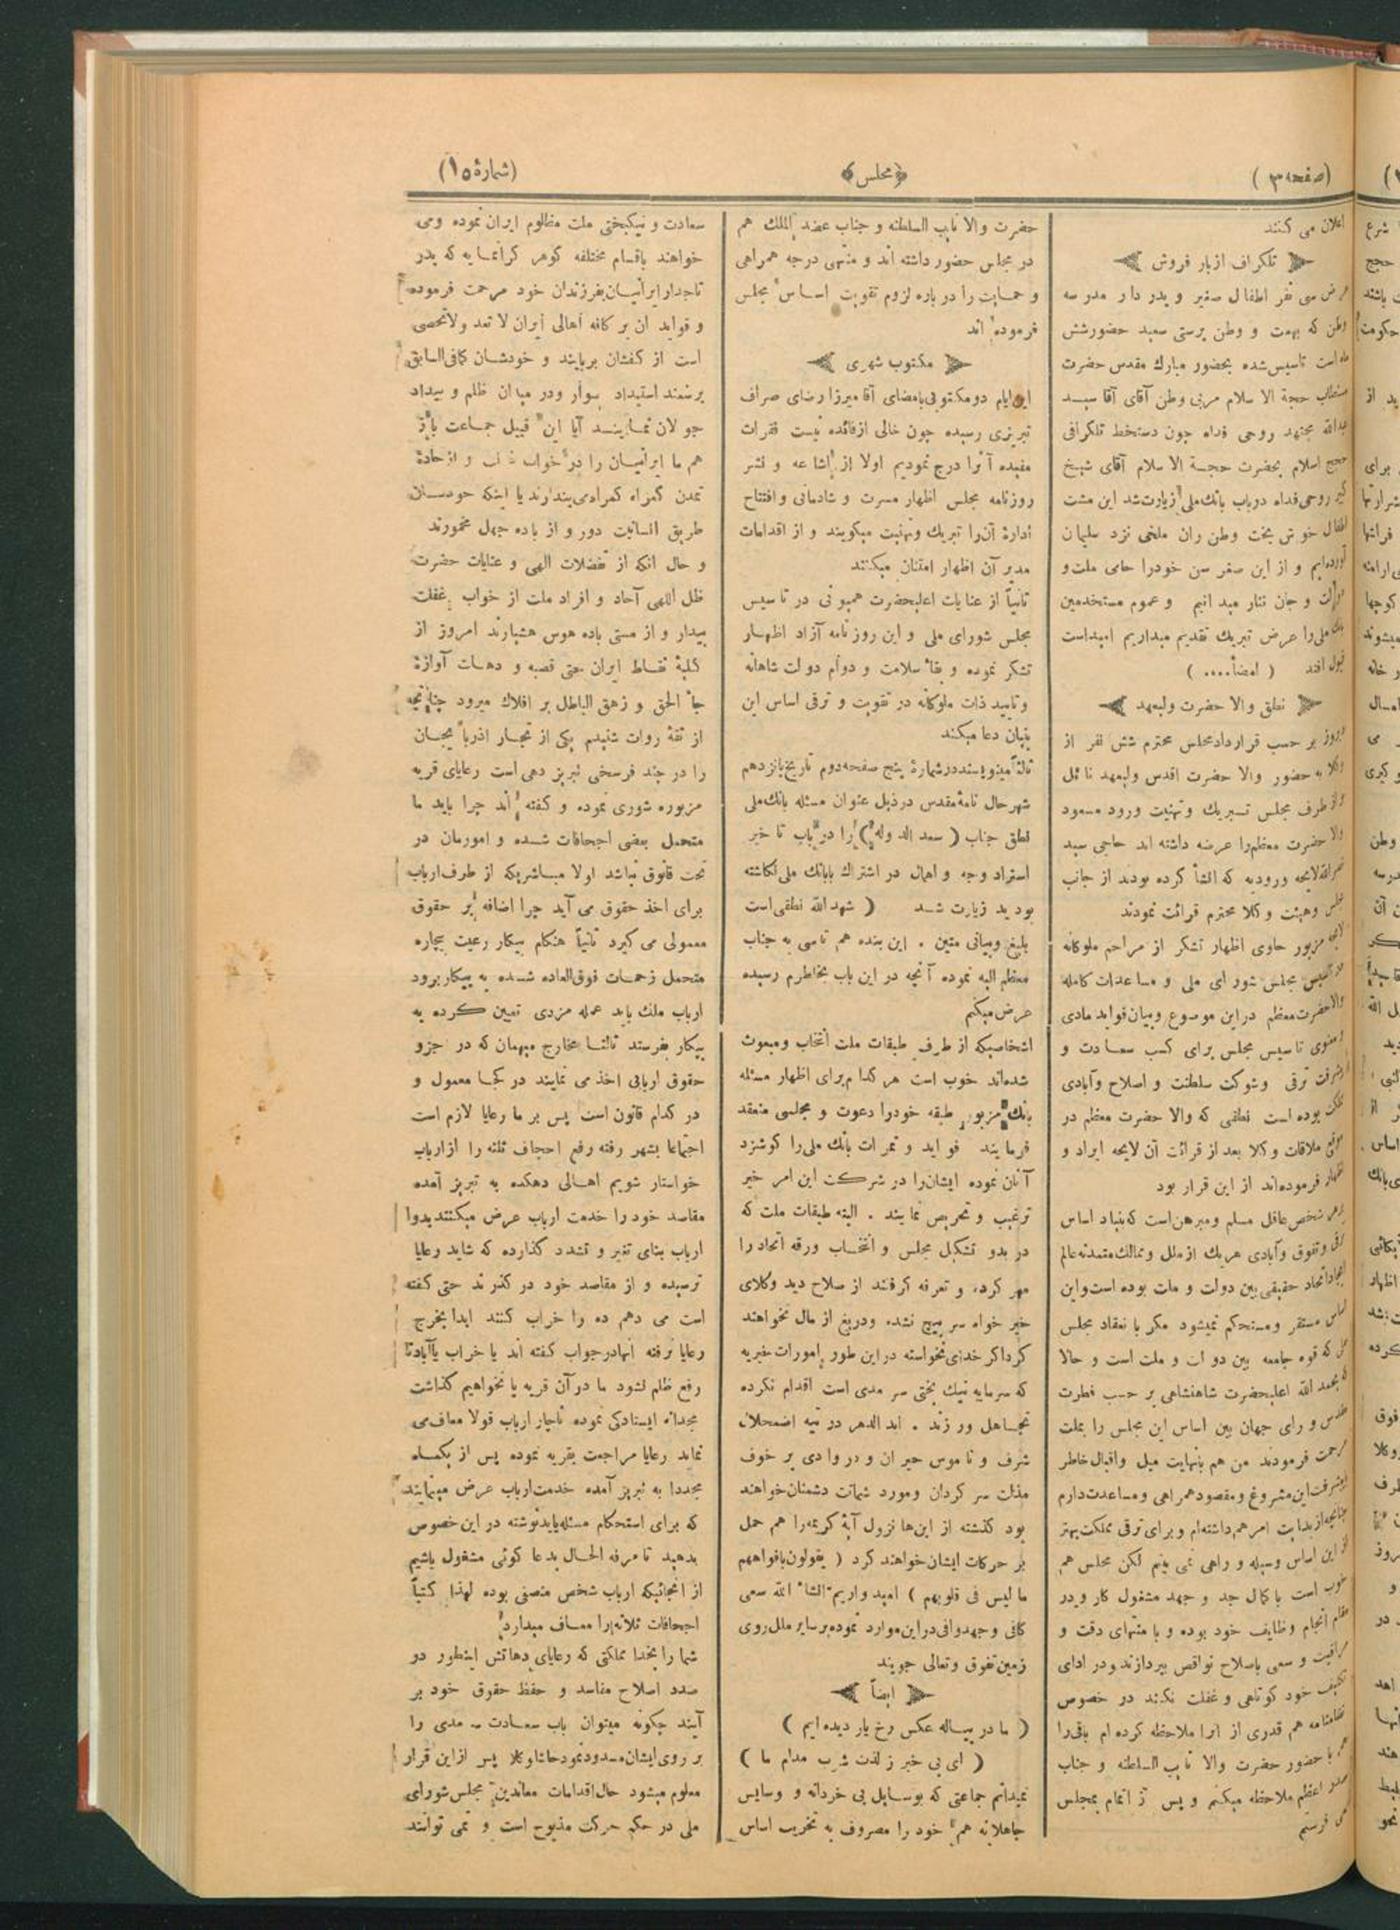 (صفحه ۳)
﴿مجلس﴾
(شمارهٔ ۱۵)
اعلان می کنند
تلگراف از بار فروش
عرض سی نفر اطفال صغیر و پدر دار مدرسه
وطن که بهمت و وطن پرستی سعید حضورشش
ماه است تاسیس شده بحضور مبارك مقدس حضرت
مستطاب حجة الاسلام مربی وطن آقای آقا سید
عبدالله مجتهد روحی فداه چون دستخط تلگرافی
حجج اسلام بحضرت حجة الاسلام آقای شیخ
کبیر روحی فداه درباب بانك ملی زیارت شد این مشت
اطفال خوش بخت وطن ران ملخی نزد سلیمان
آورده‌ایم و از این صغر سن خودرا حامی ملت و
دولت و جان نثار میدانیم و عموم مستخدمین
بانك ملی را عرض تبریك تقدیم میداریم امیداست
قبول افتد ( امضأ.... )
نطق والا حضرت ولیعهد
دیروز بر حسب قرارداد مجلس محترم شش نفر از
وکلا به حضور والا حضرت اقدس ولیعهد نائل
و از طرف مجلس تبریك و تهنیت ورود مسعود
والا حضرت معظم را عرضه داشته اند حاجی سید
نصرالله لایحه ورودیه که انشأ کرده بودند از جانب
مجلس وهیئت وکلا محترم قرائت نمودند
لایحه مزبور حاوی اظهار تشکر از مراحم ملوکانه
در تاسیس مجلس شورای ملی و مساعدات کامله
والاحضرت معظم دراین موضوع وبیان فواید مادی
و معنوی تاسیس مجلس برای کسب سعادت و
پیشرفت ترقی وشوکت سلطنت و اصلاح وآبادی
مملکت بوده است نطقی که والا حضرت معظم در
موقع ملاقات وکلا بعد از قرائت آن لایحه ایراد و
اظهار فرموده‌اند از این قرار بود
برهر شخص عاقل مسلم ومبرهن است که بنیاد اساس
ترقی وتفوق وآبادی هریك از ملل وممالك متمدنه عالم
ایجاد اتحاد حقیقی بین دولت و ملت بوده است واین
اساس مستقر ومستحکم نمیشود مگر با نعقاد مجلس
ملی که قوه جامعه بین دولت و ملت است و حالا
که بحمد الله اعلیحضرت شاهنشاهی بر حسب فطرت
مقدس و رای جهان بین اساس این مجلس را بملت
مرحمت فرمودند من هم بانهایت میل واقبال خاطر
پیشرفت این مشروع ومقصود همراهی ومساعدت دارم
چنانچه از بدایت امر هم داشته‌ام و برای ترقی مملکت بهتر
از این اساس وسیله و راهی نمی بینم لکن مجلس هم
خوب است باکمال جد و جهد مشغول کار و در
مقام انجام وظایف خود بوده و با منتهای دقت و
مراقبت و سعی باصلاح نواقص بپردازند و در ادای
تکلیف خود کوتاهی و غفلت نکنند در خصوص
نظامنامه هم قدری از انرا ملاحظه کرده ام باقی را
هم با حضور حضرت والا نایب السلطنه و جناب
صدر اعظم ملاحظه میکنم و پس از اتمام بمجلس
می فرستم
حضرت والا نایب السلطنه و جناب عضد الملك هم
در مجلس حضور داشته اند و منتهی درجه همراهی
و حمایت را در باره لزوم تقویت اساس مجلس
فرموده اند
مکتوب شهری
این ایام دو مکتوبی بامضای آقا میرزا رضای صراف
تبریزی رسیده چون خالی از فائده نیست فقرات
مفیده آنرا درج نمودیم اولا از اشاعه و نشر
روزنامه مجلس اظهار مسرت و شادمانی وافتتاح
ادارهٔ آن‌را تبریك وتهنیت میگویند و از اقدامات
مدیر آن اظهار امتنان میکنند
ثانیاً از عنایات اعلیحضرت همیونی در تاسیس
مجلس شورای ملی و این روزنامه آزاد اظهار
تشکر نموده و بقأ سلامت و دوام دولت شاهانه
وتایید ذات ملوکانه در تقویت و ترقی اساس این
بنیان دعا میکند
ثالثاً مینویسند در شمارهٔ پنج صفحه دوم تاریخ پانزدهم
شهر حال نامهٔ مقدس در ذیل عنوان مسئله بانك ملی
نطق جناب ( سعد الدوله ) را در باب تاخیر
استراد وجه و اهمال در اشتراك بابانك ملی نگاشته
بودید زیارت شد ( شهد الله نطقی است
بلیغ وبیانی متین . این بنده هم تاسی به جناب
معظم الیه نموده آنچه در این باب بخاطرم رسیده
عرض میکنم
اشخاصیکه از طرف طبقات ملت انتخاب ومبعوث
شده‌اند خوب است هر کدام برای اظهار مسئله
بانك مزبور طبقه خودرا دعوت و مجلسی منعقد
فرمایند فواید و ثمرات بانك ملی را گوشزد
آنان نموده ایشان‌را در شرکت این امر خیر
ترغیب و تحریص نمایند . البته طبقات ملت که
در بدو تشکیل مجلس و انتخاب ورقه اتحاد را
مهر کرده و تعرفه گرفتند از صلاح دید وکلای
خیر خواه سر پیچ نشده ودریغ از مال نخواهند
کرد اگر خدای نخواسته در این طور امورات خیریه
که سرمایه نیك بختی سرمدی است اقدام نکرده
تجاهل ورزند . ابد الدهر در تیه اضمحلال
شرف و ناموس حیران و در وادی پر خوف
مذلت سر گردان ومورد شماتت دشمنان خواهند
بود گذشته از این‌ها نزول آیهٔ کریمه را هم حمل
بر حرکات ایشان خواهند کرد ( یقولون بافواههم
ما لیس فی قلوبهم ) امید واریم انشأ الله سعی
کافی وجهد وافی در این موارد نموده برسایر ملل روی
زمین تفوق وتعالی جویند
ایضاً
( ما در پیاله عکس رخ یار دیده ایم )
( ای بی خبر ز لذت شرب مدام ما )
نمیدانم جماعتی که بوسایل بی خردانه و وسایس
جاهلانه هم خود را مصروف به تخریب اساس
سعادت و نیکبختی ملت مظلوم ایران نموده ومی
خواهند باقسام مختلفه گوهر گرانمایه که پدر
تاجدار ایرانیان بفرزندان خود مرحمت فرموده
و فواید ان بر کافه اهالی ایران لا تعد ولا تحصی
است از کفشان بربایند و خودشان کمافی السابق
برسمند استبداد سوار ودر میدان ظلم و بیداد
جولان نمایند آیا این قبیل جماعت باز
هم ما ایرانیان را در خواب و از جادهٔ
تمدن گمراه می‌پندارند یا اینکه خودشان
طریق انسانیت دور و از باده جهل مخمورند
و حال انکه از تفضلات الهی و عنایات حضرت
ظل اللهی آحاد و افراد ملت از خواب غفلت
بیدار و از مستی باده هوس هشیارند امروز از
کلیهٔ نقاط ایران حتی قصبه و دهات آوازهٔ
جأ الحق و زهق الباطل بر افلاك میرود چنانچه
از ثقهٔ روات شنیدم یکی از تجار اذربایجان
را در چند فرسخی تبریز دهی است رعایای قریه
مزبوره شوری نموده و گفته اند چرا باید ما
متحمل بعضی اجحافات شده و امورمان در
تحت قانون نباشد اولا مباشریکه از طرف ارباب
برای اخذ حقوق می آید چرا اضافه بر حقوق
معمولی می گیرد ثانیاً هنگام بیکار رعیت بیچاره
متحمل زحمات فوق‌العاده شده به بیکار برود
ارباب ملك باید عمله مزدی تعیین کرده به
بیکار بفرستد ثالثا مخارج میهمان که در جزو
حقوق اربابی اخذ می نمایند در کجا معمول و
در کدام قانون است پس بر ما رعایا لازم است
اجتماعا بشهر رفته رفع اجحاف ثلثه را از ارباب
خواستار شویم اهالی دهکده به تبریز آمده
مقاصد خود را خدمت ارباب عرض میکنند بدوا
ارباب بنای تغیر و تشدد گذارده که شاید رعایا
ترسیده و از مقاصد خود در گذرند حتی گفته
است می دهم ده را خراب کنند ابدا بخرج
رعایا نرفته انها در جواب گفته اند یا خراب یا آباد تا
رفع ظلم نشود ما در آن قریه پا نخواهیم گذاشت
مجدانه ایستادگی نموده ناچار ارباب قولا معاف می
نماید رعایا مراجعت بقریه نموده پس از یکماه
مجددا به تبریز آمده خدمت ارباب عرض مینمایند
که برای استحکام مسئله باید نوشته در این خصوص
بدهید تا مرفه الحال بدعا گوئی مشغول باشیم
از انجائیکه ارباب شخص منصفی بوده لهذا کتباً
اجحافات ثلاثه را معاف میدارد
شما را بخدا مملکتی که رعایای دهاتش اینطور در
صدد اصلاح مفاسد و حفظ حقوق خود بر
آیند چگونه میتوان باب سعادت سرمدی را
بر روی ایشان مسدود نمود حاشا وکلا پس از این قرار
معلوم میشود حال اقدامات معاندین مجلس شورای
ملی در حکم حرکت مذبوح است و نمی توانند